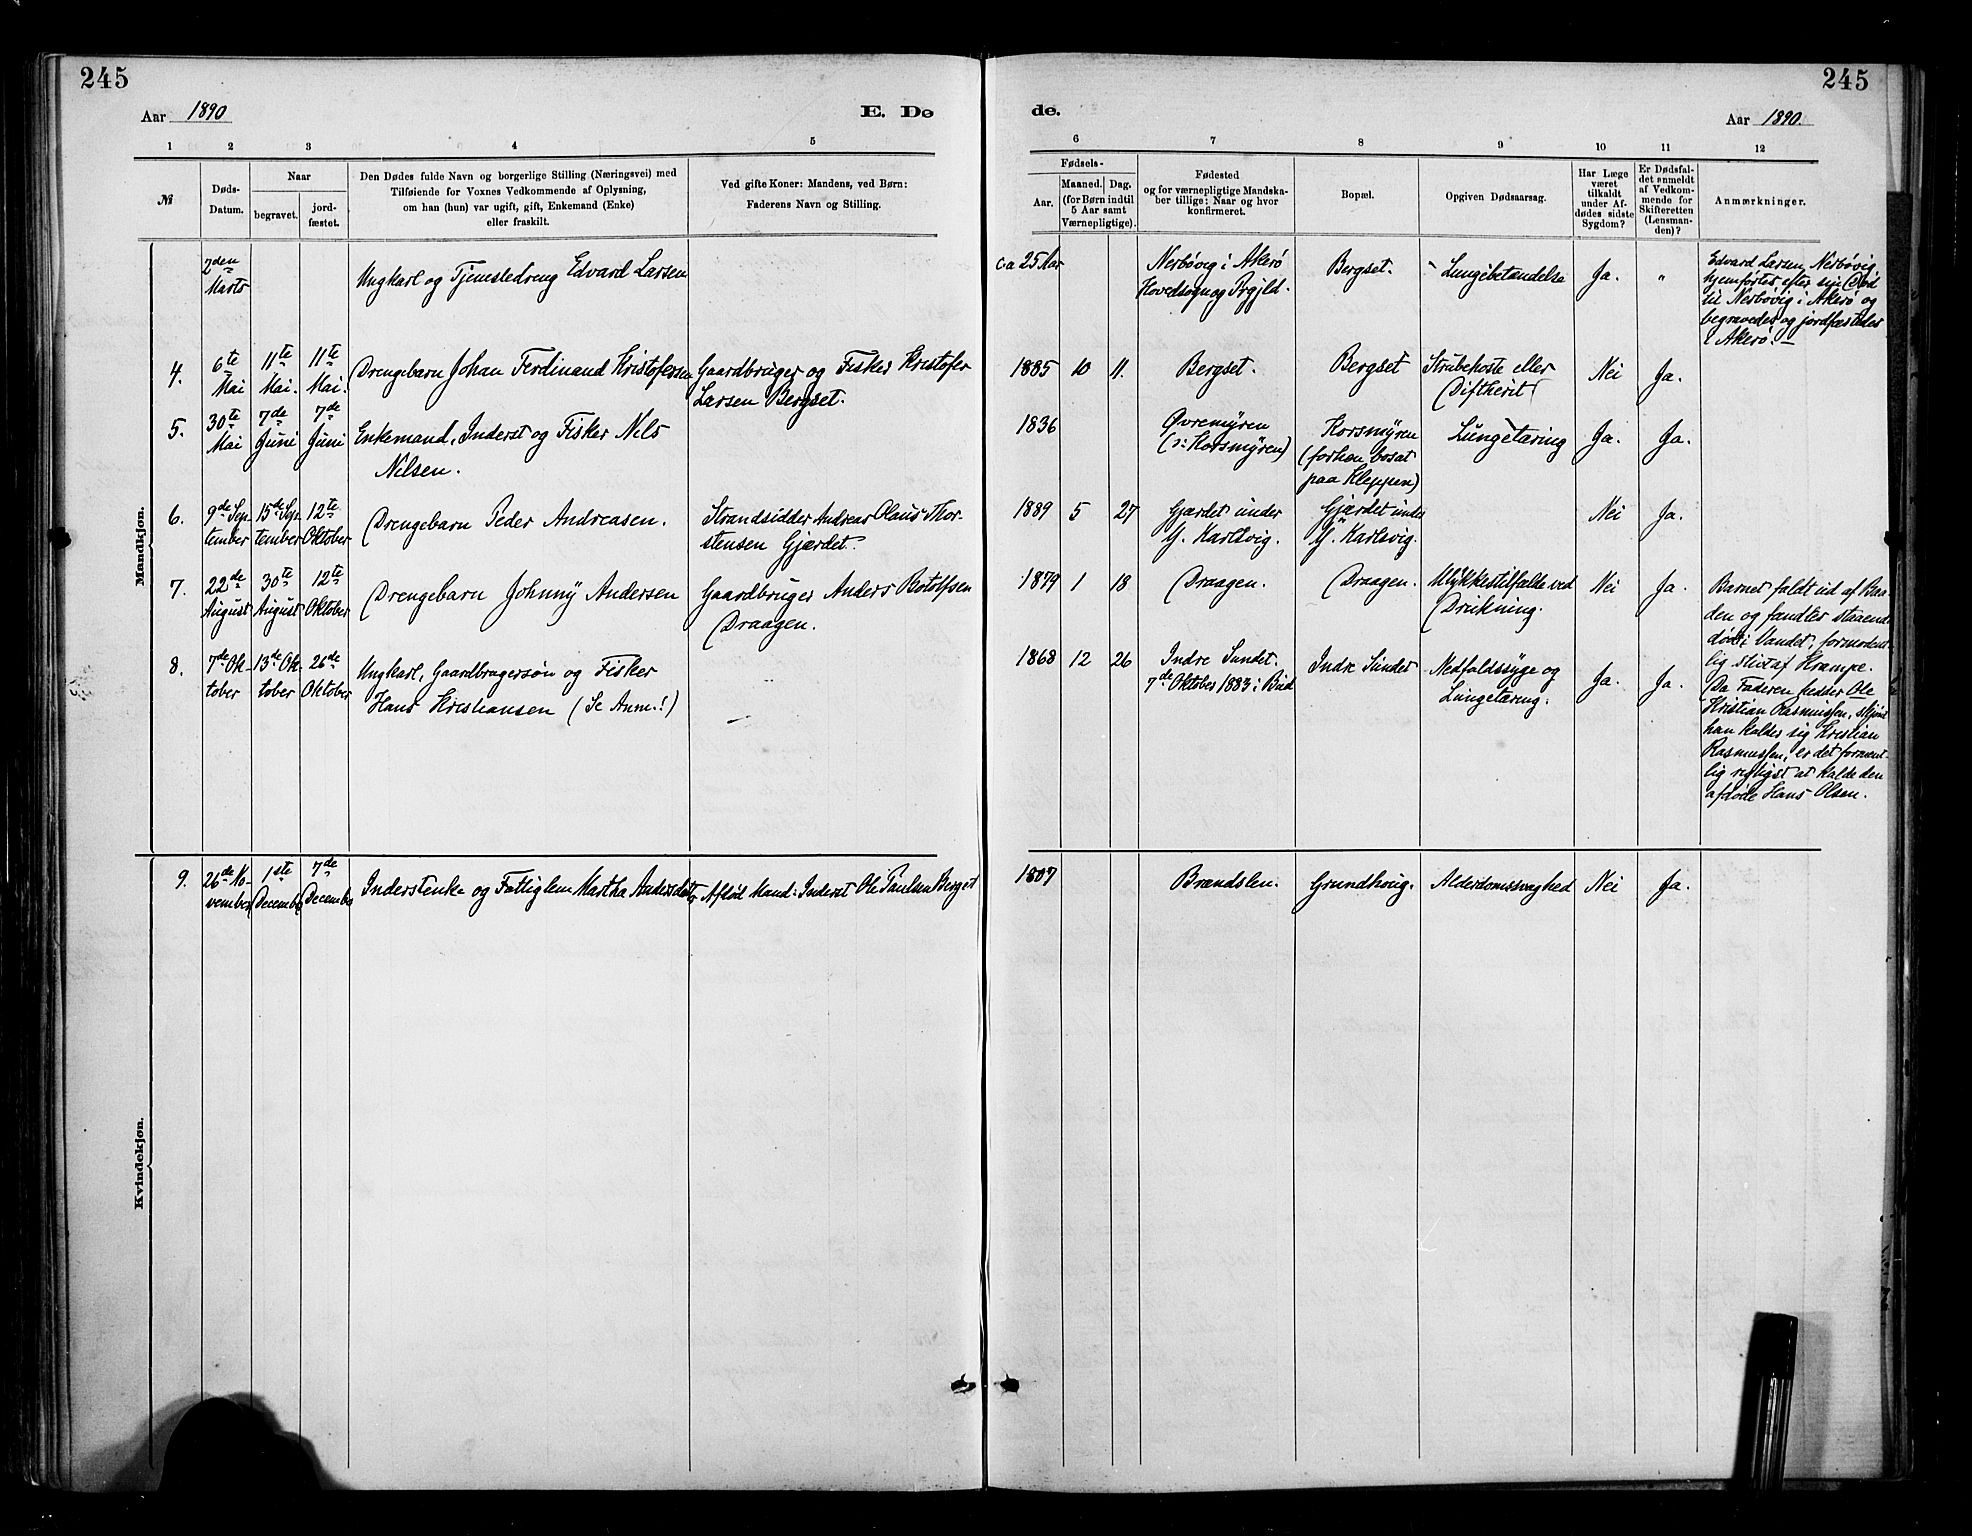 245
245
Aar 1890
E. Dø
de.
Aar 1890.
1 2 3 4 5
6 7 8 9 10 11 12
№
Døds-
Datum.
Naar
begravet.
jord-
fæstet.
Den Dødes fulde Navn og borgerlige Stilling (Næringsvei) med
Tilføiende for Voxnes Vedkommende af Oplysning,
om han (hun) var ugift, gift, Enkemand (Enke)
eller fraskilt.
Ved gifte Koner: Mandens, ved Børn:
Faderens Navn og Stilling.
Fødsels-
Aar.
Maaned. Dag.
(for Børn indtil
5 Aar samt
Værnepligtige).
Fødested
og for værnepligtige Mandska-
ber tillige: Naar og hvor
konfirmeret.
Bopæl.
Opgiven Dødsaarsag.
Har Læge
været
tilkaldt
under Af-
dødes sidste
Sygdom?
Er Dødsfal-
det anmeldt
af Vedkom-
mende for
Skifteretten
(Lensman-
den)?
Anmærkninger.
Mandkjøn.
2den
Marts
Ungkarl og Tjenestedreng Edvard Larsen
ca 25 Aar
Nerbøvig i Akerø
Hovedsogn og Prgjld.
Bergset.
Lungebetændelse
Ja.
"
Edvard Larsen Nerbøvig
hjemførtes efter sin Død
til Nerbøvig i Akerø og
begravedes og jordfæstedes
i Akerø.
4.
6te
Mai
11te
Mai.
11te
Mai.
Drengebarn Johan Ferdinand Kristofersen
Gaardbruger og Fisker Kristofer
Larsen Bergset.
1885 10 11.
Bergset.
Bergset
Strubehoste eller
Diftherit
Nei
Ja.
5.
30te
Mai
7de
Juni
7de
Juni
Enkemand, Inderst og Fisker Nils
Nilsen.
1836
Øvremyren
(ɔ: Korsmyren)
Korsmyren
(forhen bosat
paa Kleppen)
Lungetæring
Ja.
Ja.
6.
9de Sep
tember
15de Sep
tember
12te
Oktober
Drengebarn Peder Andreasen.
Strandsidder Andreas Olaus Thor-
stensen Gjærdet.
1889 5 27
Gjærdet under
G. Karlsvig.
Gjærdet under
G. Karlsvig.
Nei
Ja.
7.
22de
August
30te
August
12te
Oktober
Drengebarn Johnny Andersen
Gaardbruger Anders Botolfsen
Draagen.
1879 1 18
Draagen.
Draagen.
Ulykkestilfælde ved
Drukning.
Nei
Ja.
Barnet faldt ud af Baa-
den og fandtes staaende
død i Vandet, formodent-
lig slidt af Krampe.
8.
7de Ok
tober
13de Ok
tober
26de
Oktober
Ungkarl, Gaardbrugersøn og Fisker
Hans Kristiansen (Se Anm.!)
1868 12 26
Indre Sundet.
7de Oktober 1883 i Bud
Indre Sundet
Nedfaldssyge og
Lungetæring.
Ja.
Ja.
Da Faderen hedder Ole
Kristian Rasmussen, skjønt
han kalder sig Kristian
Rasmussen, er det forment-
lig rigtigst at kalde den
afdøde Hans Olsen.
Kvindekjøn.
9.
26de No-
vember
1ste
December
7de
December
Inderstenke og Fattiglem Martha Andersdatter
Afdød Mand: Inderst Ole Paulsen Bergset
1807
Brændslen.
Grundhoug.
Alderdomssvaghed
Nei
Ja.